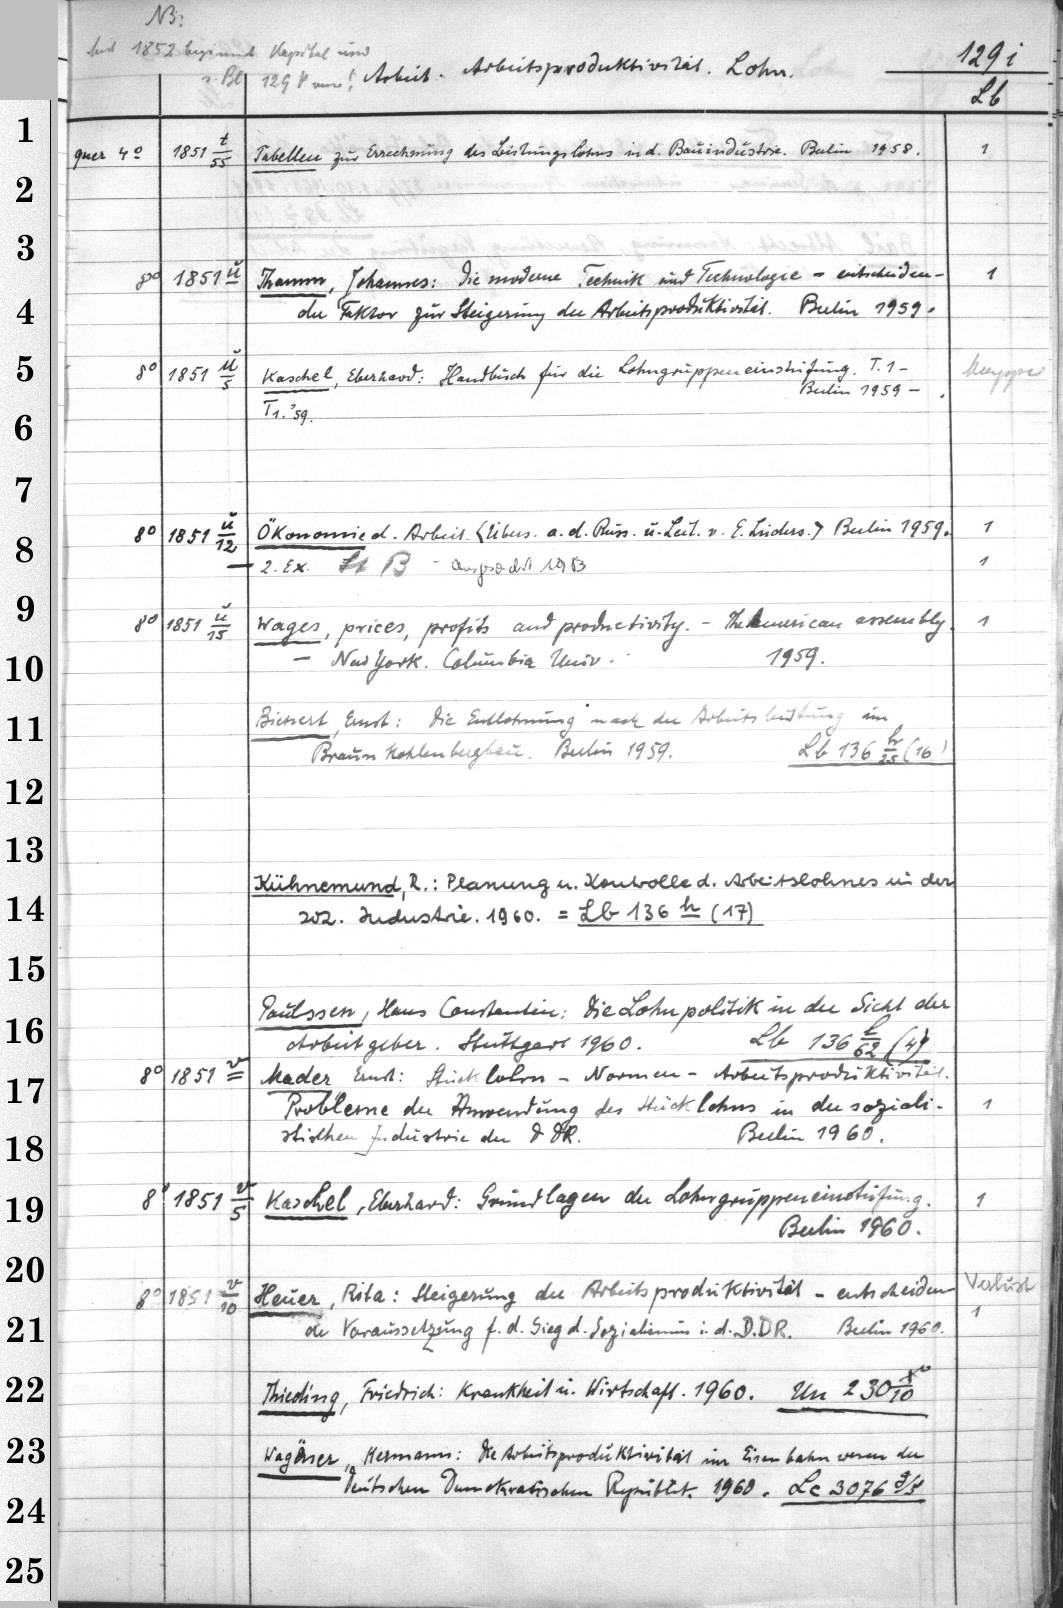 NB:
mit 1852 beginnt Kapital und
s. Bl 129 k Arbeit. Arbeitsproduktivität. Lohn. 129 i
Lb
1
quer 4° 1851 t/55 Tabellen zur Errechnung des Leistungslohns in d. Bauindustrie. Berlin 1958. 1
2
3
8° 1851 ü Thamm, Johannes: Die moderne Technik und Technologie – entscheiden- 1
4 der Faktor zur Steigerung der Arbeitsproduktivität. Berlin 1959.
5 8° 1851 ü/5 Kaschel, Eberhard: Handbuch für die Lohngruppeneinstufung. T. 1 –
Berlin 1959 – .
6 T 1. '59.
7
8° 1851 ü/12 Ökonomie d. Arbeit. (Übers. a. d. Russ. u. Leit. v. E. Lüders.) Berlin 1959. 1
8 – 2. Ex. St B - 1
9 8° 1851 ü/15 Wages, prices, profits and productivity. – The American assembly. 1
10 – New York. Columbia Univ. 1959.
11 Bienert, Ernst: Die Entlohnung nach der Arbeitsleistung im
Braunkohlenbergbau. Berlin 1959. Lb 136 h/25 (16)
12
13
Kühnemund, R.: Planung u. Kontrolle d. Arbeitslohnes in der
14 soz. Industrie. 1960. = Lb 136 h (17)
15
Paulssen, Hans Constantin: Die Lohnpolitik in der Sicht der
16 Arbeitgeber. Stuttgart 1960. Lb 136 h/62 (4)
8° 1851 v Mader Ernst: Stücklohn – Normen – Arbeitsproduktivität.
17 Probleme der Anwendung des Stücklohns in der soziali- 1
18 stischen Industrie der DDR. Berlin 1960.
19 8° 1851 v/5 Kaschel, Eberhard: Grundlagen der Lohngruppeneinstufung. 1
Berlin 1960.
20
8° 1851 v/10 Heuer, Rita: Steigerung der Arbeitsproduktivität – entscheiden- Verlust
21 de Voraussetzung f. d. Sieg d. Sozialismus i. d. D.DR. Berlin 1960. 1
22 Thieding, Friedrich: Krankheit u. Wirtschaft. 1960. Un 230 x/10
23 Wagener, Hermann: Die Arbeitsproduktivität im Eisenbahnwesen der
24 Deutschen Demokratischen Republik. 1960. Lc 3076 g/5
25